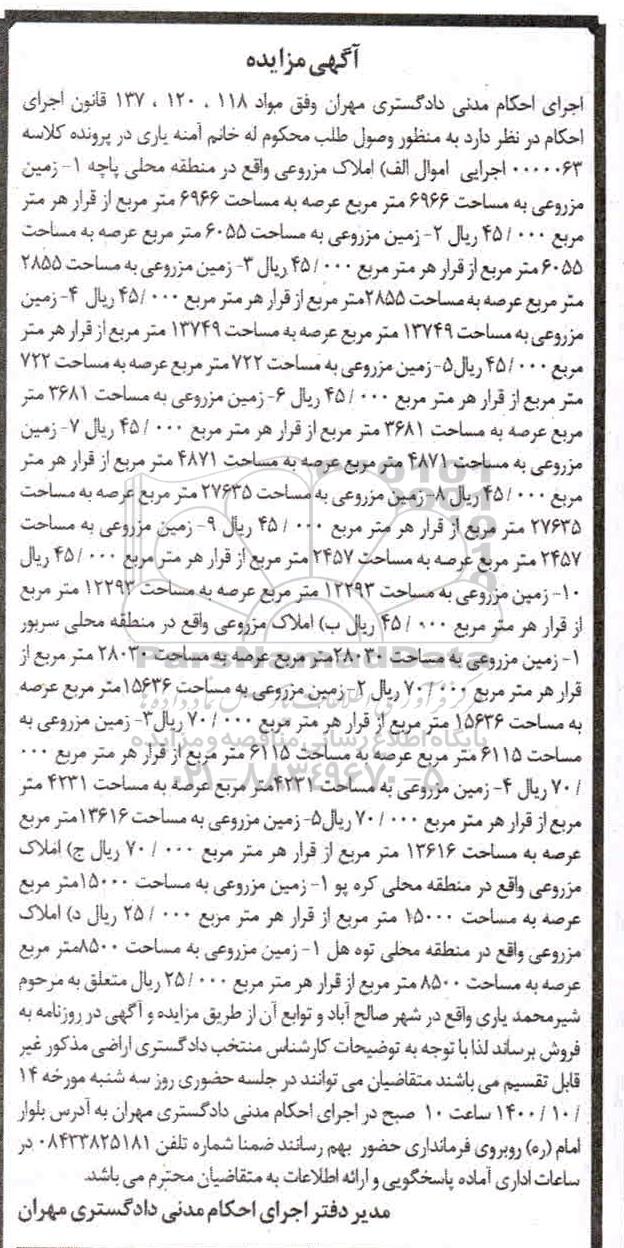 آگهی مزایده
اجرای احکام مدنی دادگستری مهران وفق مواد ۱۱۸ ، ۱۲۰ ، ۱۳۷ قانون اجرای
احکام در نظر دارد به منظور وصول طلب محکوم له خانم آمنه یاری در پرونده کلاسه
۰۰۰۰۰۶۳ اجرایی اموال الف) املاک مزروعی واقع در منطقه محلی پاچه ۱- زمین
مزروعی به مساحت ۶۹۶۶ متر مربع عرصه به مساحت ۶۹۶۶ متر مربع از قرار هر متر
مربع ۴۵/۰۰۰ ریال ۲- زمین مزروعی به مساحت ۶۰۵۵ متر مربع عرصه به مساحت
۶۰۵۵ متر مربع از قرار هر متر مربع ۴۵/۰۰۰ ریال ۳- زمین مزروعی به مساحت ۲۸۵۵
متر مربع عرصه به مساحت ۲۸۵۵متر مربع از قرار هر متر مربع ۴۵/۰۰۰ ریال ۴- زمین
مزروعی به مساحت ۱۳۷۴۹ متر مربع عرصه به مساحت ۱۳۷۴۹ متر مربع از قرار هر متر
مربع ۴۵/۰۰۰ ریال۵- زمین مزروعی به مساحت ۷۲۲ متر مربع عرصه به مساحت ۷۲۲
متر مربع از قرار هر متر مربع ۴۵/۰۰۰ ریال ۶- زمین مزروعی به مساحت ۳۶۸۱ متر
مربع عرصه به مساحت ۳۶۸۱ متر مربع از قرار هر متر مربع ۴۵/۰۰۰ ریال ۷- زمین
مزروعی به مساحت ۴۸۷۱ متر مربع عرصه به مساحت ۴۸۷۱ متر مربع از قرار هر متر
مربع ۴۵/۰۰۰ ریال ۸- زمین مزروعی به مساحت ۲۷۶۳۵ متر مربع عرصه به مساحت
۲۷۶۳۵ متر مربع از قرار هر متر مربع ۴۵/۰۰۰ ریال ۹- زمین مزروعی به مساحت
۲۴۵۷ متر مربع عرصه به مساحت ۲۴۵۷ متر مربع از قرار هر متر مربع ۴۵/۰۰۰ ریال
۱۰- زمین مزروعی به مساحت ۱۲۲۹۳ متر مربع عرصه به مساحت ۱۲۲۹۳ متر مربع
از قرار هر متر مربع ۴۵/۰۰۰ ریال ب) املاک مزروعی واقع در منطقه محلی سربور
۱- زمین مزروعی به مساحت ۲۸۰۳۰متر مربع عرصه به مساحت ۲۸۰۳۰ متر مربع از
قرار هر متر مربع ۷۰/۰۰۰ ریال ۲- زمین مزروعی به مساحت ۱۵۶۳۶متر مربع عرصه
به مساحت ۱۵۶۳۶ متر مربع از قرار هر متر مربع ۷۰/۰۰۰ ریال۳- زمین مزروعی به
مساحت ۶۱۱۵ متر مربع عرصه به مساحت ۶۱۱۵ متر مربع از قرار هر متر مربع ۰۰۰
/ ۷۰ ریال ۴- زمین مزروعی به مساحت ۴۲۳۱متر مربع عرصه به مساحت ۴۲۳۱ متر
مربع از قرار هر متر مربع ۷۰/۰۰۰ ریال۵- زمین مزروعی به مساحت ۱۳۶۱۶متر مربع
عرصه به مساحت ۱۳۶۱۶ متر مربع از قرار هر متر مربع ۷۰/۰۰۰ ریال ج) املاک
مزروعی واقع در منطقه محلی کره پو ۱- زمین مزروعی به مساحت ۱۵۰۰۰متر مربع
عرصه به مساحت ۱۵۰۰۰ متر مربع از قرار هر متر مربع ۲۵/۰۰۰ ریال د) املاک
مزروعی واقع در منطقه محلی توه هل ۱- زمین مزروعی به مساحت ۸۵۰۰متر مربع
عرصه به مساحت ۸۵۰۰ متر مربع از قرار هر متر مربع ۲۵/۰۰۰ ریال متعلق به مرحوم
شیرمحمد یاری واقع در شهر صالح آباد و توابع آن از طریق مزایده و آگهی در روزنامه به
فروش برساند لذا با توجه به توضیحات کارشناس منتخب دادگستری اراضی مذکور غیر
قابل تقسیم می باشند متقاضیان می توانند در جلسه حضوری روز سه شنبه مورخه ۱۴
/ ۱۰ / ۱۴۰۰ ساعت ۱۰ صبح در اجرای احکام مدنی دادگستری مهران به آدرس بلوار
امام (ره) روبروی فرمانداری حضور بهم رسانند ضمنا شماره تلفن ۰۸۴۳۳۸۲۵۱۸۱ در
ساعات اداری آماده پاسخگویی و ارائه اطلاعات به متقاضیان محترم می باشد.
مدیر دفتر اجرای احکام مدنی دادگستری مهران
ParsNamadData
پایگاه اطلاع رسانی مناقصه و مزایده
۰۲۱-۸۸۳۴۹۶۷۰-۵